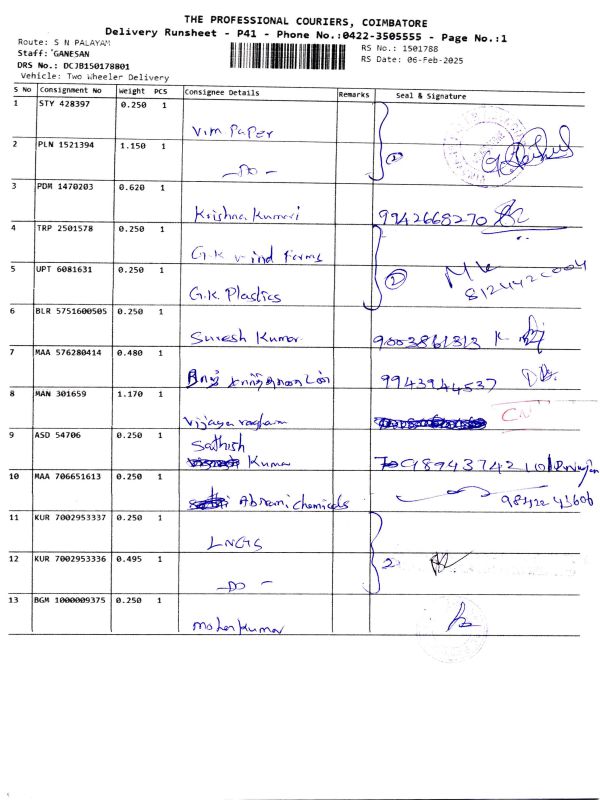 THE PROFESSIONAL COURIERS, COIMBATORE
Delivery Runsheet - P41 - Phone No.:0422-3505555 - Page No.:1
Route: S N PALAYAM
RS No.: 1501788
Staff: GANESAN
RS Date: 06-Feb-2025
DRS No.: DCJB150178801
Vehicle: Two Wheeler Delivery
S No Consignment No Weight PCS Consignee Details Remarks Seal & Signature
1 STY 428397 0.250 1
Vim Paper
2 PLN 1521394 1.150 1
2
- Do -
3 PDM 1470203 0.620 1
Krishna Kumari 9942668270
4 TRP 2501578 0.250 1
G.K wind farms
5 UPT 6081631 0.250 1
2 8124422004
G.K. Plastics
6 BLR 5751600505 0.250 1
Suresh Kumar 9003861313 K
7 MAA 576280414 0.480 1
9943944537
8 MAN 301659 1.170 1
CN
9 ASD 54706 0.250 1
Sathish
Kumar
10 MAA 706651613 0.250 1
Abirami chemicals
11 KUR 7002953337 0.250 1
LNGS
12 KUR 7002953336 0.495 1
2
- Do -
13 BGM 1000009375 0.250 1